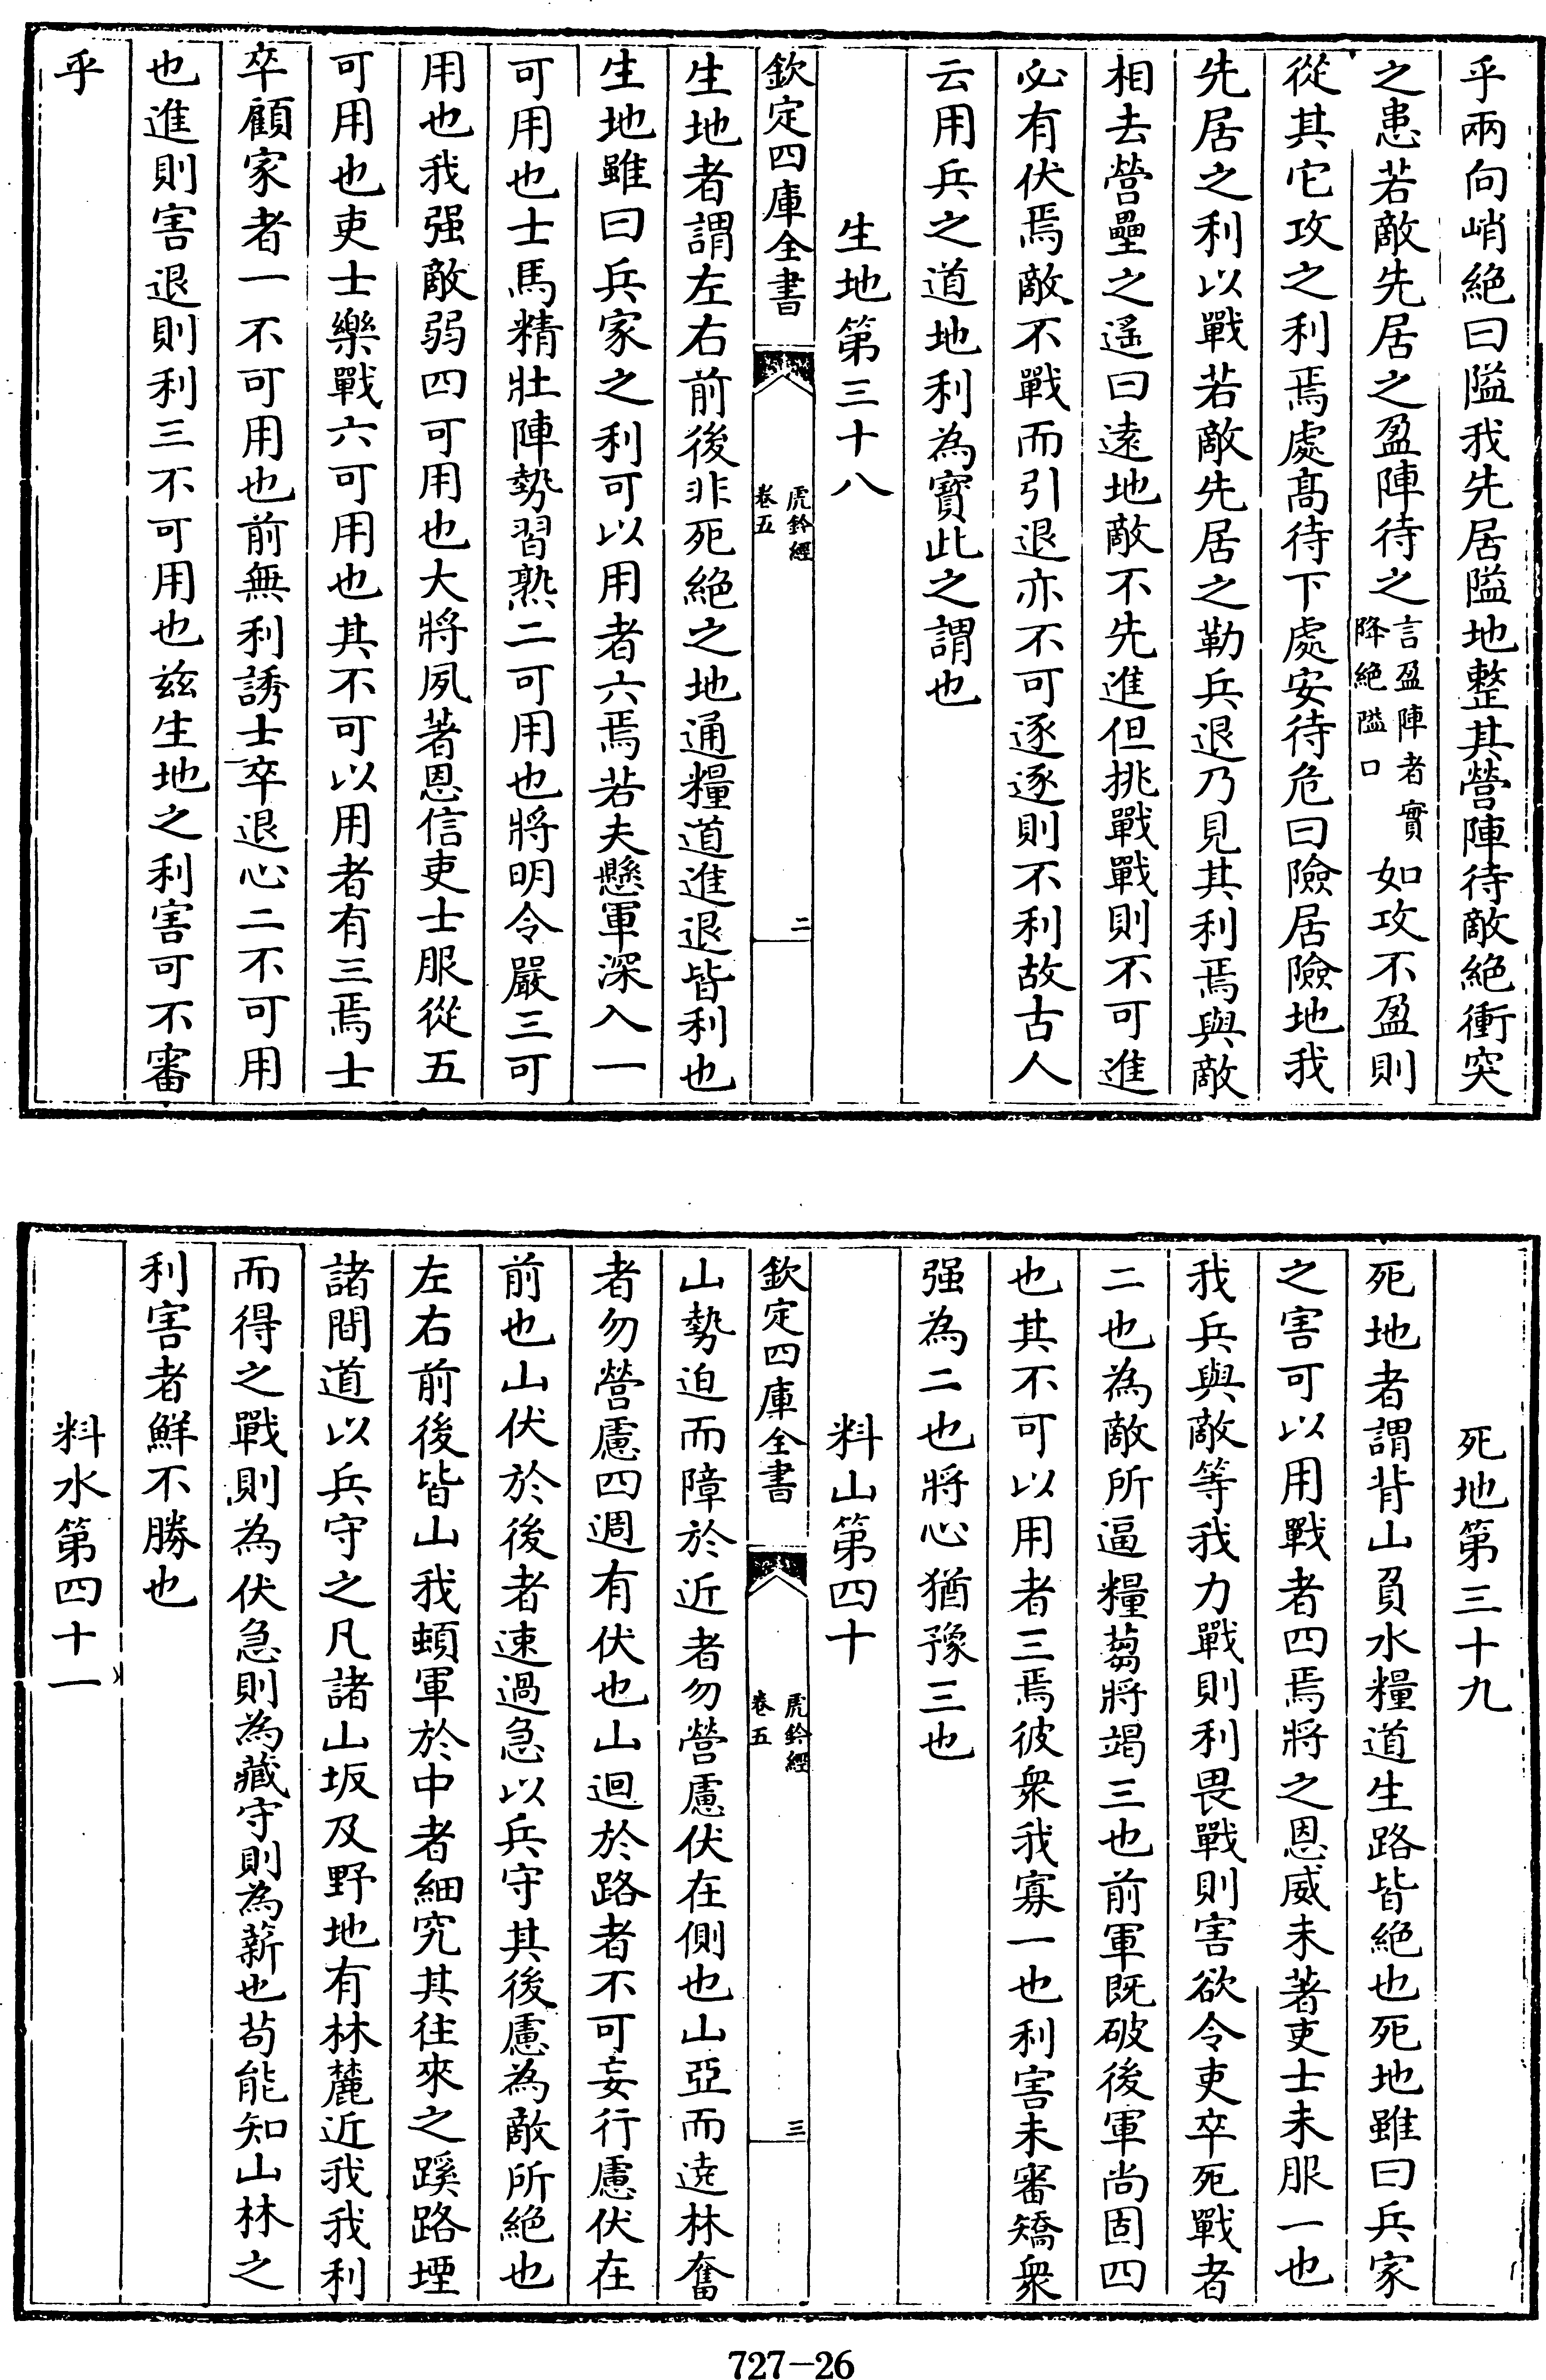 乎兩向峭絕曰隘我先居隘地整其營陣待敵絕衝突
之患若敵先居之盈陣待之言盈陣者實降絕隘口如攻不盈則
從其它攻之利焉處髙待下處安待危曰險居險地我
先居之利以戰若敵先居之勒兵退乃見其利焉與敵
相去營壘之遙曰逺地敵不先進但挑戰戰則不可進
必有伏焉敵不戰而引退亦不可逐逐則不利故古人
云用兵之道地利為寳此之謂也
生地第三十八
欽定四庫全書
虎鈐經
卷五
二
生地者謂左右前後非死絕之地通糧道進退皆利也
生地雖曰兵家之利可以用者六焉若夫懸軍深入一
可用也士馬精壯陣勢習熟二可用也將明令嚴三可
用也我强敵弱四可用也大將夙著恩信吏士服從五
可用也吏士樂戰六可用也其不可以用者有三焉士
卒顧家者一不可用也前無利誘士卒退心二不可用
也進則害退則利三不可用也兹生地之利害可不審
乎
死地第三十九
死地者謂背山負水糧道生路皆絕也死地雖曰兵家
之害可以用戰者四焉將之恩威未著吏士未服一也
我兵與敵等我力戰則利畏戰則害欲令吏卒死戰者
二也為敵所逼糧蒭將竭三也前軍既破後軍尚固四
也其不可以用者三焉彼衆我寡一也利害未審矯衆
强為二也將心猶豫三也
料山第四十
欽定四庫全書
虎鈐經
卷五
三
山勢迫而障於近者勿營慮伏在側也山亞而遶林奮
者勿營慮四週有伏也山迴於路者不可妄行慮伏在
前也山伏於後者速過急以兵守其後慮為敵所絕也
左右前後皆山我頓軍於中者細究其往來之蹊路堙
諸間道以兵守之凡諸山坂及野地有林麓近我我利
而得之戰則為伏急則為藏守則為薪也苟能知山林之
利害者鮮不勝也
料水第四十一
727-26